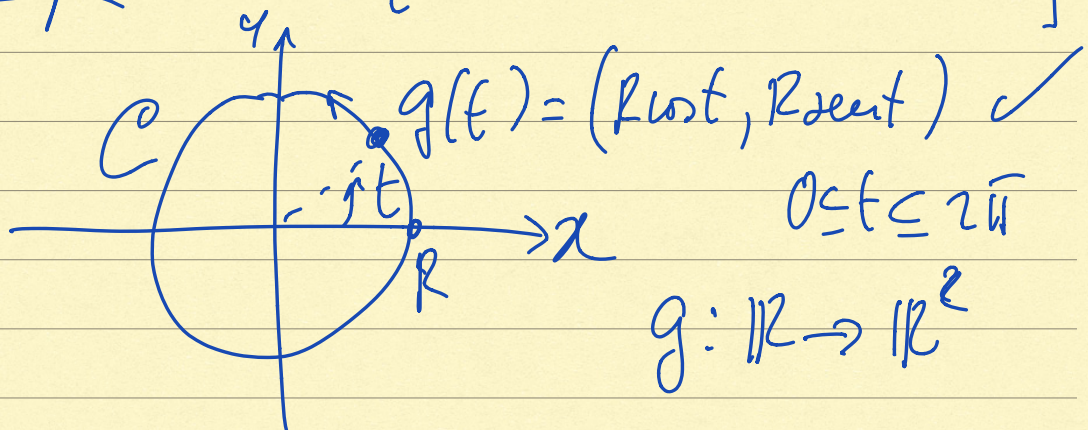 y
C g(t) = (R cos t, R sen t) ✓
t 0 ≤ t ≤ 2π
x
R
g: ℝ → ℝ²